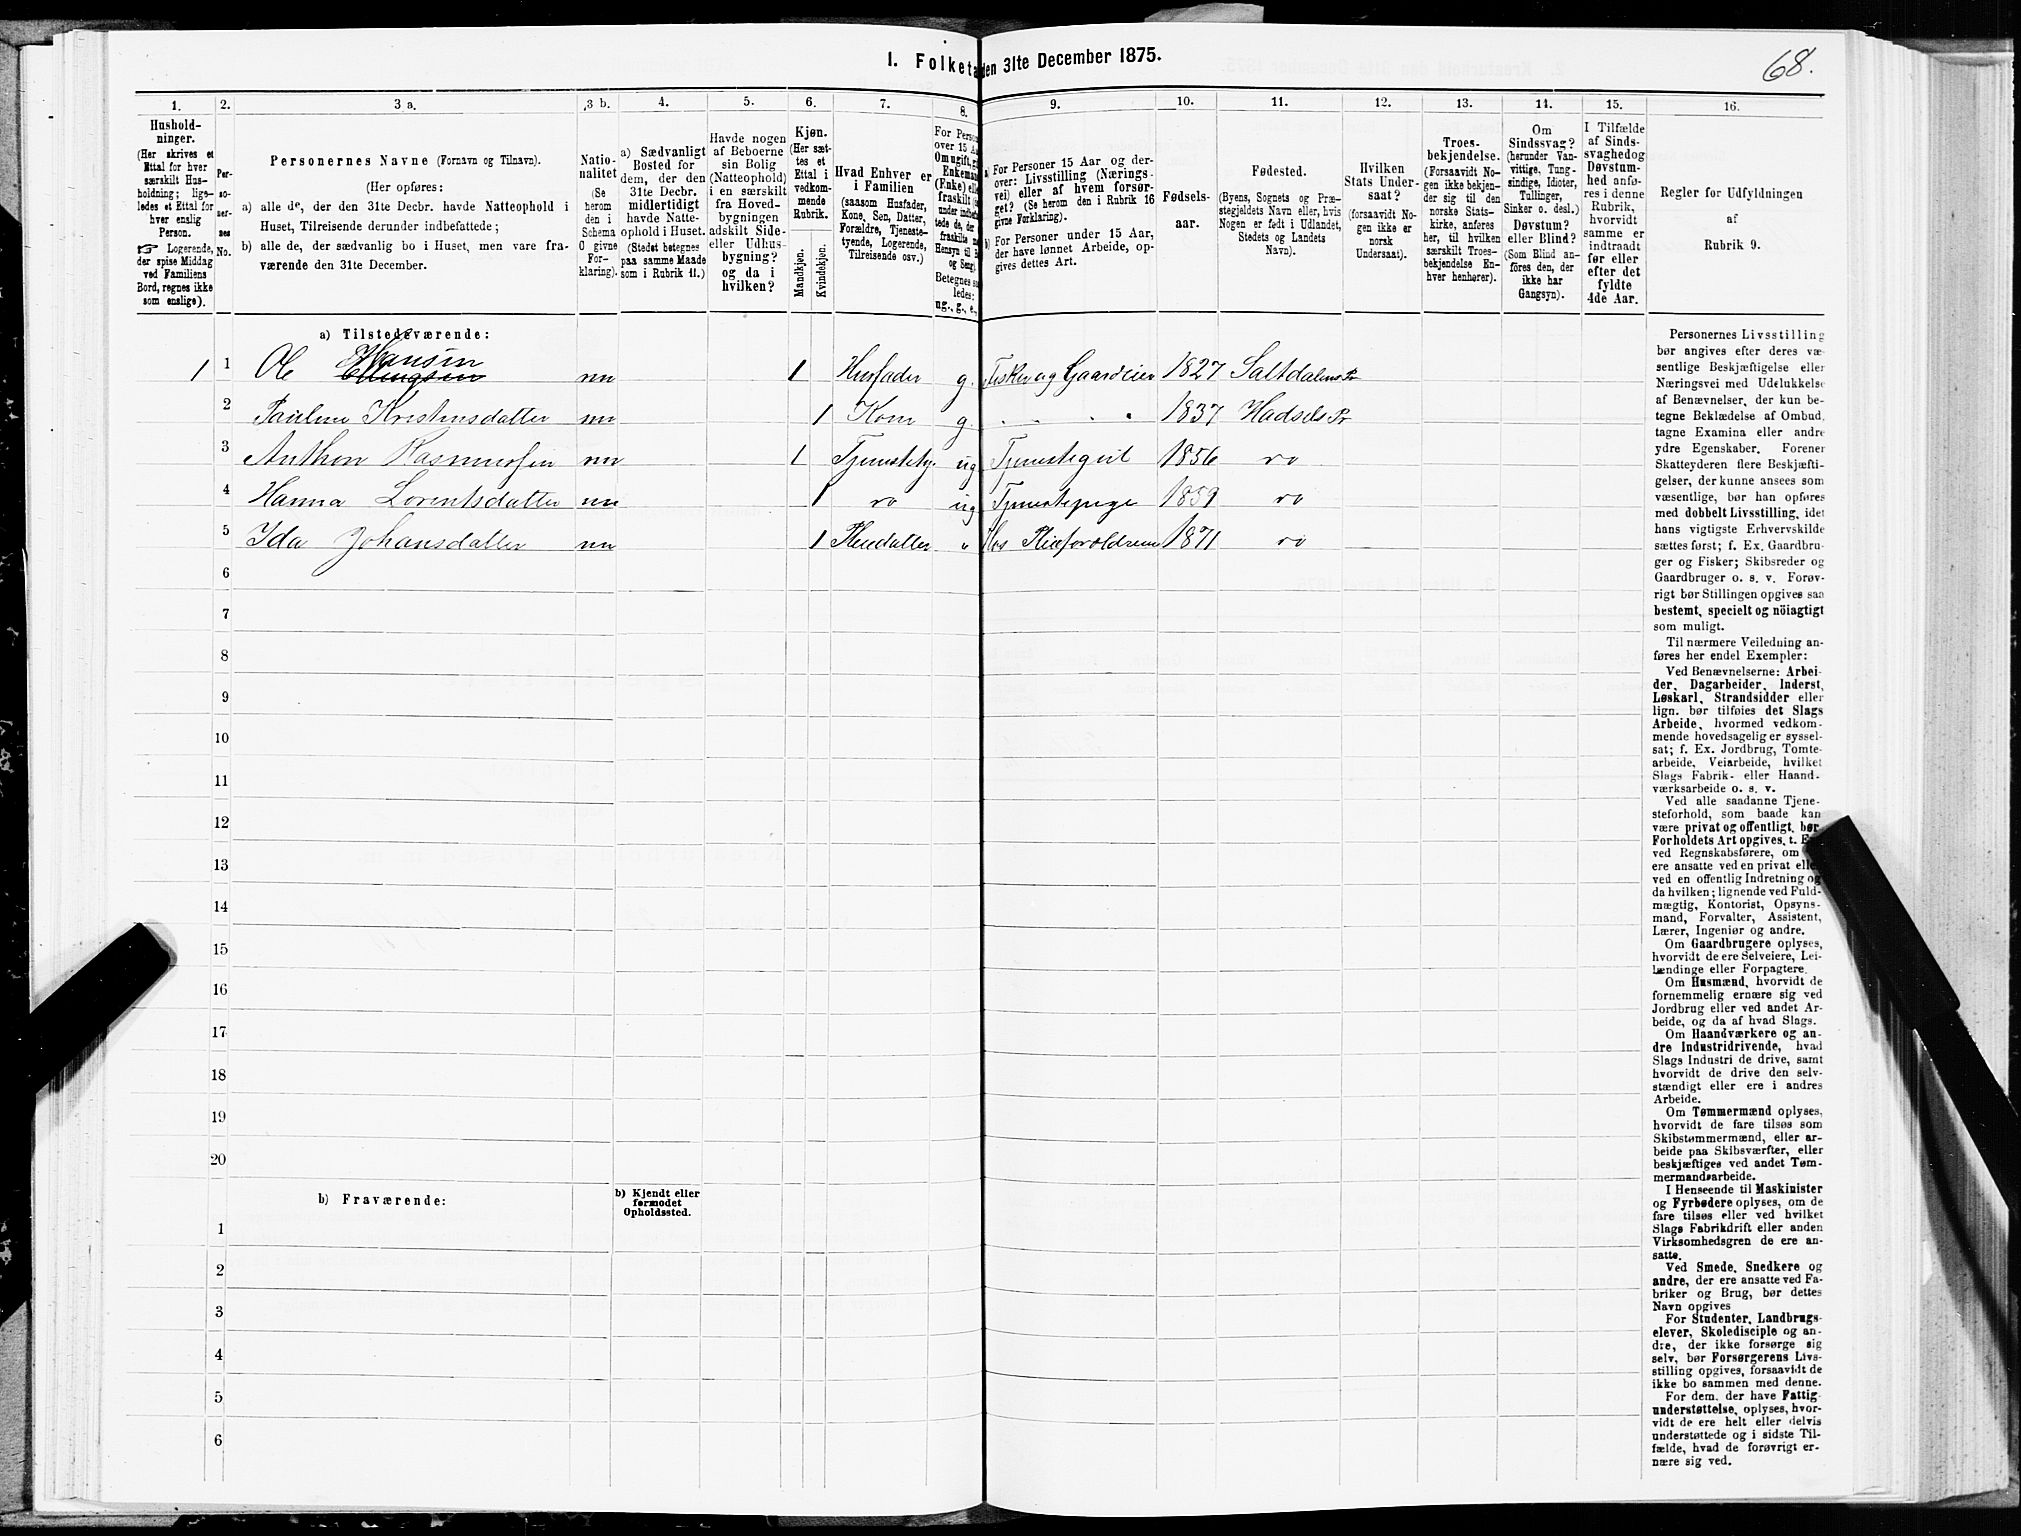 68.
I. Folketa den 31te December 1875.
1. 2. 3 a. 3 b. 4. 5. 6. 7. 8. 9. 10. 11. 12. 13. 14. 15. 16.
Hushold-
ninger.
(Her skrives et
Ettal for hver
særskilt Hus-
holdning; lige-
ledes et Ettal for
hver enslig
Person.
☞ Logerende,
der spise Middag
ved Familiens
Bord, regnes ikke
som enslige).
Per-
so-
ner-
nes
No.
Personernes Navne (Fornavn og Tilnavn).
(Her opføres:
a) alle de, der den 31te Decbr. havde Natteophold i
Huset, Tilreisende derunder indbefattede;
b) alle de, der sædvanlig bo i Huset, men vare fra-
værende den 31te December.
Natio-
nalitet
(Se
herom
den i
Schema
O givne
For-
klaring).
a) Sædvanligt
Bosted for
dem, der den
31te Decbr.
midlertidigt
havde Natte-
ophold i Huset.
(Stedet betegnes
paa samme Maade
som i Rubrik 11.)
Havde nogen
af Beboerne
sin Bolig
(Natteophold)
i en særskilt
fra Hoved-
bygningen
adskilt Side-
eller Udhus-
bygning?
og da i
hvilken?
Kjøn.
(Her sæt-
tes et
Ettal i
vedkom-
mende
Rubrik.
Mandkjøn.
Kvindekjøn.
Hvad Enhver er
i Familien
(saasom Husfader,
Kone, Søn, Datter,
Forældre, Tjeneste-
tyende, Logerende,
Tilreisende osv.)
For Person
over 15 Aa
Om ugift, g
Enkema
(Enke) elle
fraskilt (s
under indbe
tede de, der
fraskilte m
Hensyn til B
og Seng).
Betegnes sa
ledes:
ug., g., e.,
a) For Personer 15 Aar og der-
over: Livsstilling (Nærings-
vei) eller af hvem forsør-
get? (Se herom den i Rubrik 16
givne Forklaring).
b) For Personer under 15 Aar,
der have lønnet Arbeide, op-
gives dettes Art.
Fødsels-
aar.
Fødested.
(Byens, Sognets og Præ-
stegjeldets Navn eller, hvis
Nogen er født i Udlandet,
Stedets og Landets
Navn).
Hvilken
Stats Under-
saat?
(forsaavidt No-
gen ikke er
norsk
Undersaat).
Troes-
bekjendelse.
(Forsaavidt No-
gen ikke bekjen-
der sig til den
norske Stats-
kirke, anføres
her, til hvilken
særskilt Troes-
bekjendelse En-
hver henhører).
Om
Sindssvag?
(herunder Van-
vittige, Tung-
sindige, Idioter,
Tullinger,
Sinker o. desl.)
Døvstum?
eller Blind?
(Som Blind an-
føres den, der
ikke har
Gangsyn).
I Tilfælde
af Sinds-
svaghed og
Døvstum-
hed anfø-
res i denne
Rubrik,
hvorvidt
samme er
indtraadt
før eller
efter det
fyldte
4de Aar.
Regler for Udfyldningen
af
Rubrik 9.
a) Tilstedeværende:
Hansen
1 1 Ole Ellingsen nn 1 Husfader g. Fisker og Gaardeier 1827 Saltdalens Pr
2 Pauline Kristensdatter nn 1 Kone g. " " " 1837 Hadsels Pr
3 Anthon Rasmussen nn 1 Tjenestety. ug Tjenestegut 1856 do
4 Hanna Lorentsdatter nn 1 do ug Tjenestepige 1859 do
5 Ida Johansdatter nn 1 Pleiedatter " Hos Pleieforældrene 1871 do
6
7
8
9
10
11
12
13
14
15
16
17
18
19
20
b) Fraværende:
b) Kjendt eller
formodet
Opholdssted.
1
2
3
4
5
6
Personernes Livsstilling
bør angives efter deres væ-
sentlige Beskjæftigelse eller
Næringsvei med Udelukkelse
af Benævnelser, der kun be-
tegne Beklædelse af Ombud,
tagne Examina eller andre
ydre Egenskaber. Forener
Skatteyderen flere Beskjæfti-
gelser, der kunne ansees som
væsentlige, bør han opføres
med dobbelt Livsstilling, idet
hans vigtigste Erhvervskilde
sættes først; f. Ex. Gaardbru-
ger og Fisker; Skibsreder og
Gaardbruger o. s. v. Forøv-
rigt bør Stillingen opgives saa
bestemt, specielt og nöiagtigt
som muligt.
Til nærmere Veiledning an-
føres her endel Exempler:
Ved Benævnelserne: Arbei-
der, Dagarbeider, Inderst,
Løskarl, Strandsidder eller
lign. bør tilføies det Slags
Arbeide, hvormed vedkom-
mende hovedsagelig er syssel-
sat; f. Ex. Jordbrug, Tomte-
arbeide, Veiarbeide, hvilket
Slags Fabrik- eller Haand-
værksarbeide o. s. v.
Ved alle saadanne Tjene-
steforhold, som baade kan
være privat og offentligt, bør
Forholdets Art opgives, t. E
ved Regnskabsførere, om
ere ansatte ved en privat elle
ved en offentlig Indretning og
da hvilken; lignende ved Fuld-
mægtig, Kontorist, Opsyns-
mand, Forvalter, Assistent,
Lærer, Ingeniør og andre.
Om Gaardbrugere oplyses,
hvorvidt de ere Selveiere, Lei-
lændinge eller Forpagtere.
Om Husmænd, hvorvidt de
fornemmelig ernære sig ved
Jordbrug eller ved andet Ar-
beide, og da af hvad Slags.
Om Haandværkere og an-
dre Industridrivende, hvad
Slags Industri de drive, samt
hvorvidt de drive den selv-
stændigt eller ere i andres
Arbeide.
Om Tømmermænd oplyses,
hvorvidt de fare tilsøs som
Skibstømmermænd, eller ar-
beide paa Skibsværfter, eller
beskjæftiges ved andet Tøm-
mermandsarbeide.
I Henseende til Maskinister
og Fyrbødere oplyses, om de
fare tilsøs eller ved hvilket
Slags Fabrikdrift eller anden
Virksomhedsgren de ere an-
satte.
Ved Smede, Snedkere og
andre, der ere ansatte ved Fa-
briker og Brug, bør dettes
Navn opgives
For Studenter, Landbrugs-
elever, Skoledisciple og an-
dre, der ikke forsørge sig
selv, bør Forsørgerens Livs-
stilling opgives, forsaavidt de
ikke bo sammen med denne.
For dem, der have Fattig-
understøttelse, oplyses, hvor-
vidt de ere helt eller delvis
understøttede og i sidste Til-
fælde, hvad de forøvrigt er-
nære sig ved.